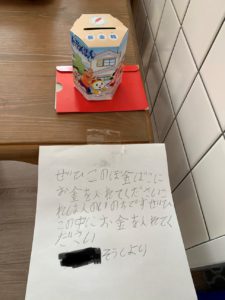 募金箱
ぜひこのぼ金ばこに
お金を入れてください
れは人のいのちですぜひ
この中にお金を入れてく
ださい
そうしより